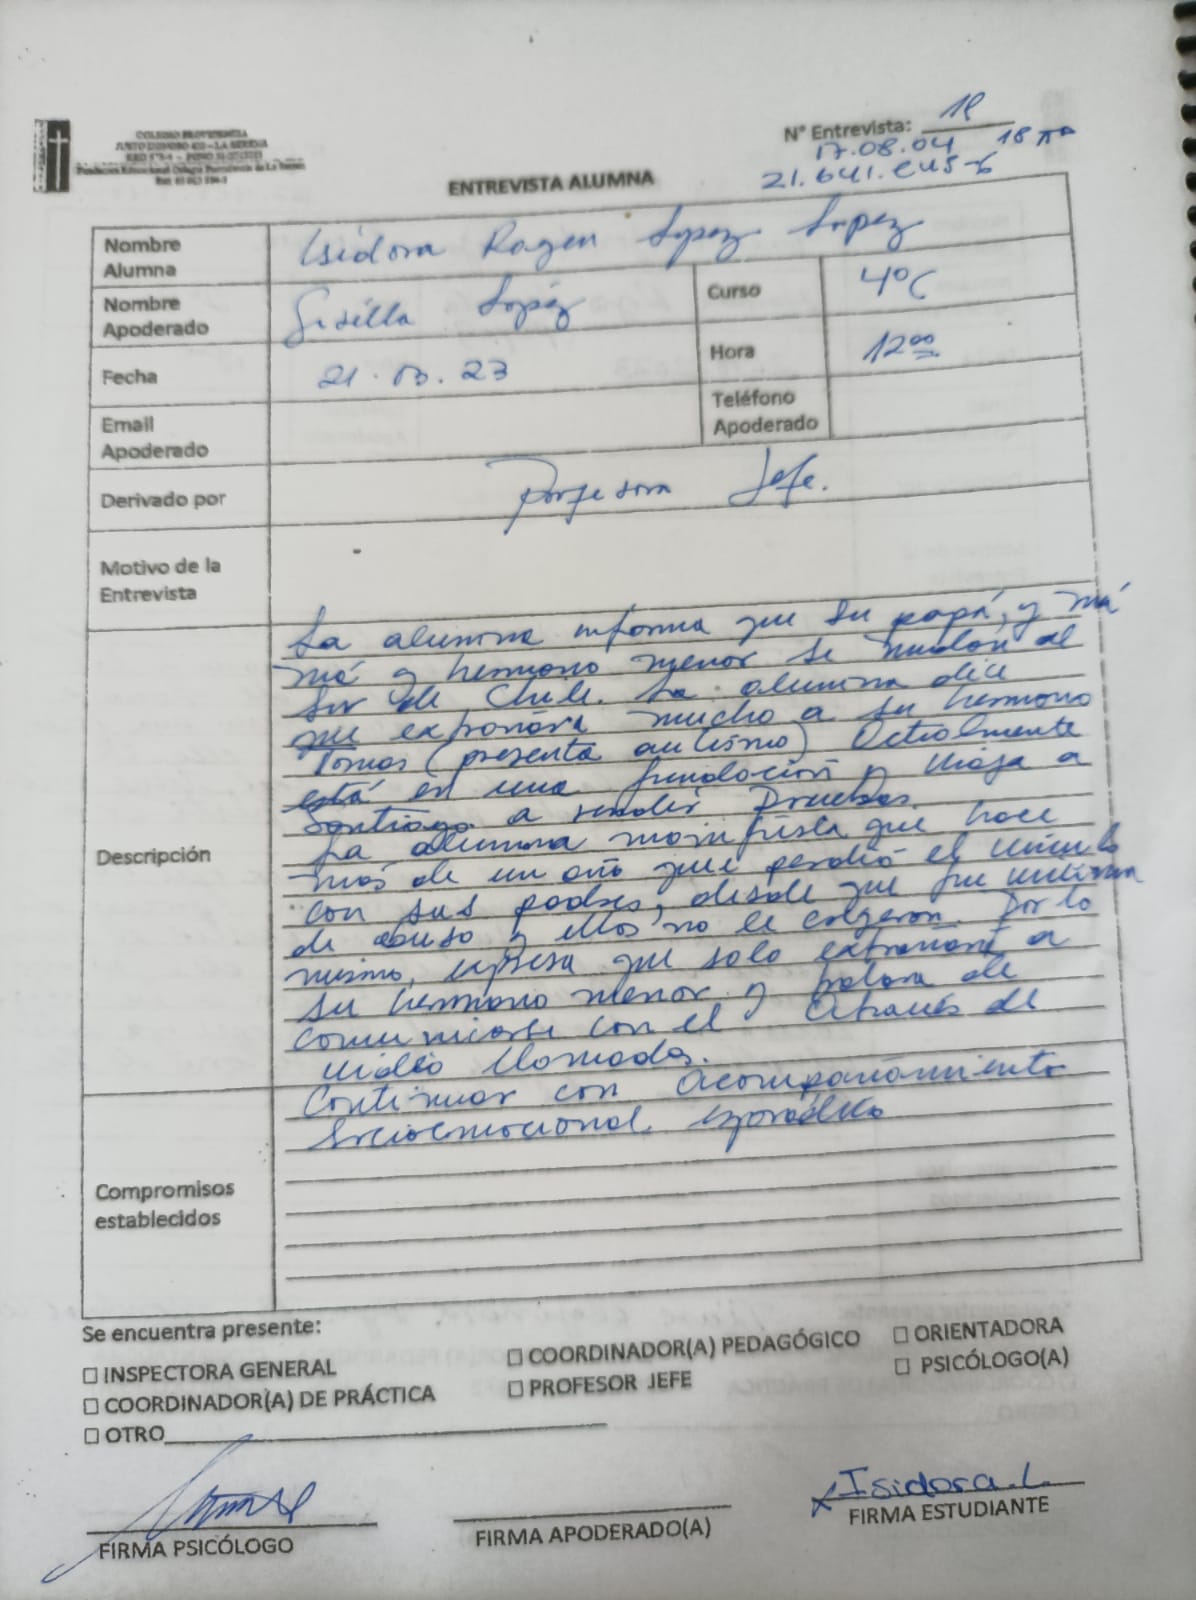 COLEGIO PROVIDENCIA
JUSTO DONOSO 420 – LA SERENA
Fundación Educacional Colegio Providencia de La Serena
N° Entrevista: 18
17.08.04 18
21.641.
ENTREVISTA ALUMNA
Nombre Alumna Isidora Lopez Lopez
Nombre Apoderado Gisella López Curso 4°C
Fecha 21.03.23 Hora 12:00
Email Apoderado Teléfono Apoderado
Derivado por Profesora Jefe.
Motivo de la Entrevista
Descripción
La alumna informa que su papá, y má
má y hermano menor se mudan al
sur de Chile. La alumna dice
que extrañara mucho a su hermano
Tomas (presenta autismo) Actualmente
está en una fundación y viaja a
Santiago a rendir Pruebas.
La alumna manifiesta que hace
más de un año que perdió el vínculo
con sus padres, desde que fue víctima
de abuso y ellos no le creyeron. Por lo
mismo, expresa que solo extrañará a
su hermano menor y tratara de
comunicarse con el a través de
video llamadas.
Compromisos establecidos
Continuar con Acompañamiento
Socioemocional esporádico
Se encuentra presente:
☐ INSPECTORA GENERAL ☐ COORDINADOR(A) PEDAGÓGICO ☐ ORIENTADORA
☐ COORDINADOR(A) DE PRÁCTICA ☐ PROFESOR JEFE ☐ PSICÓLOGO(A)
☐ OTRO
Isidora.L.
FIRMA PSICÓLOGO FIRMA APODERADO(A) FIRMA ESTUDIANTE